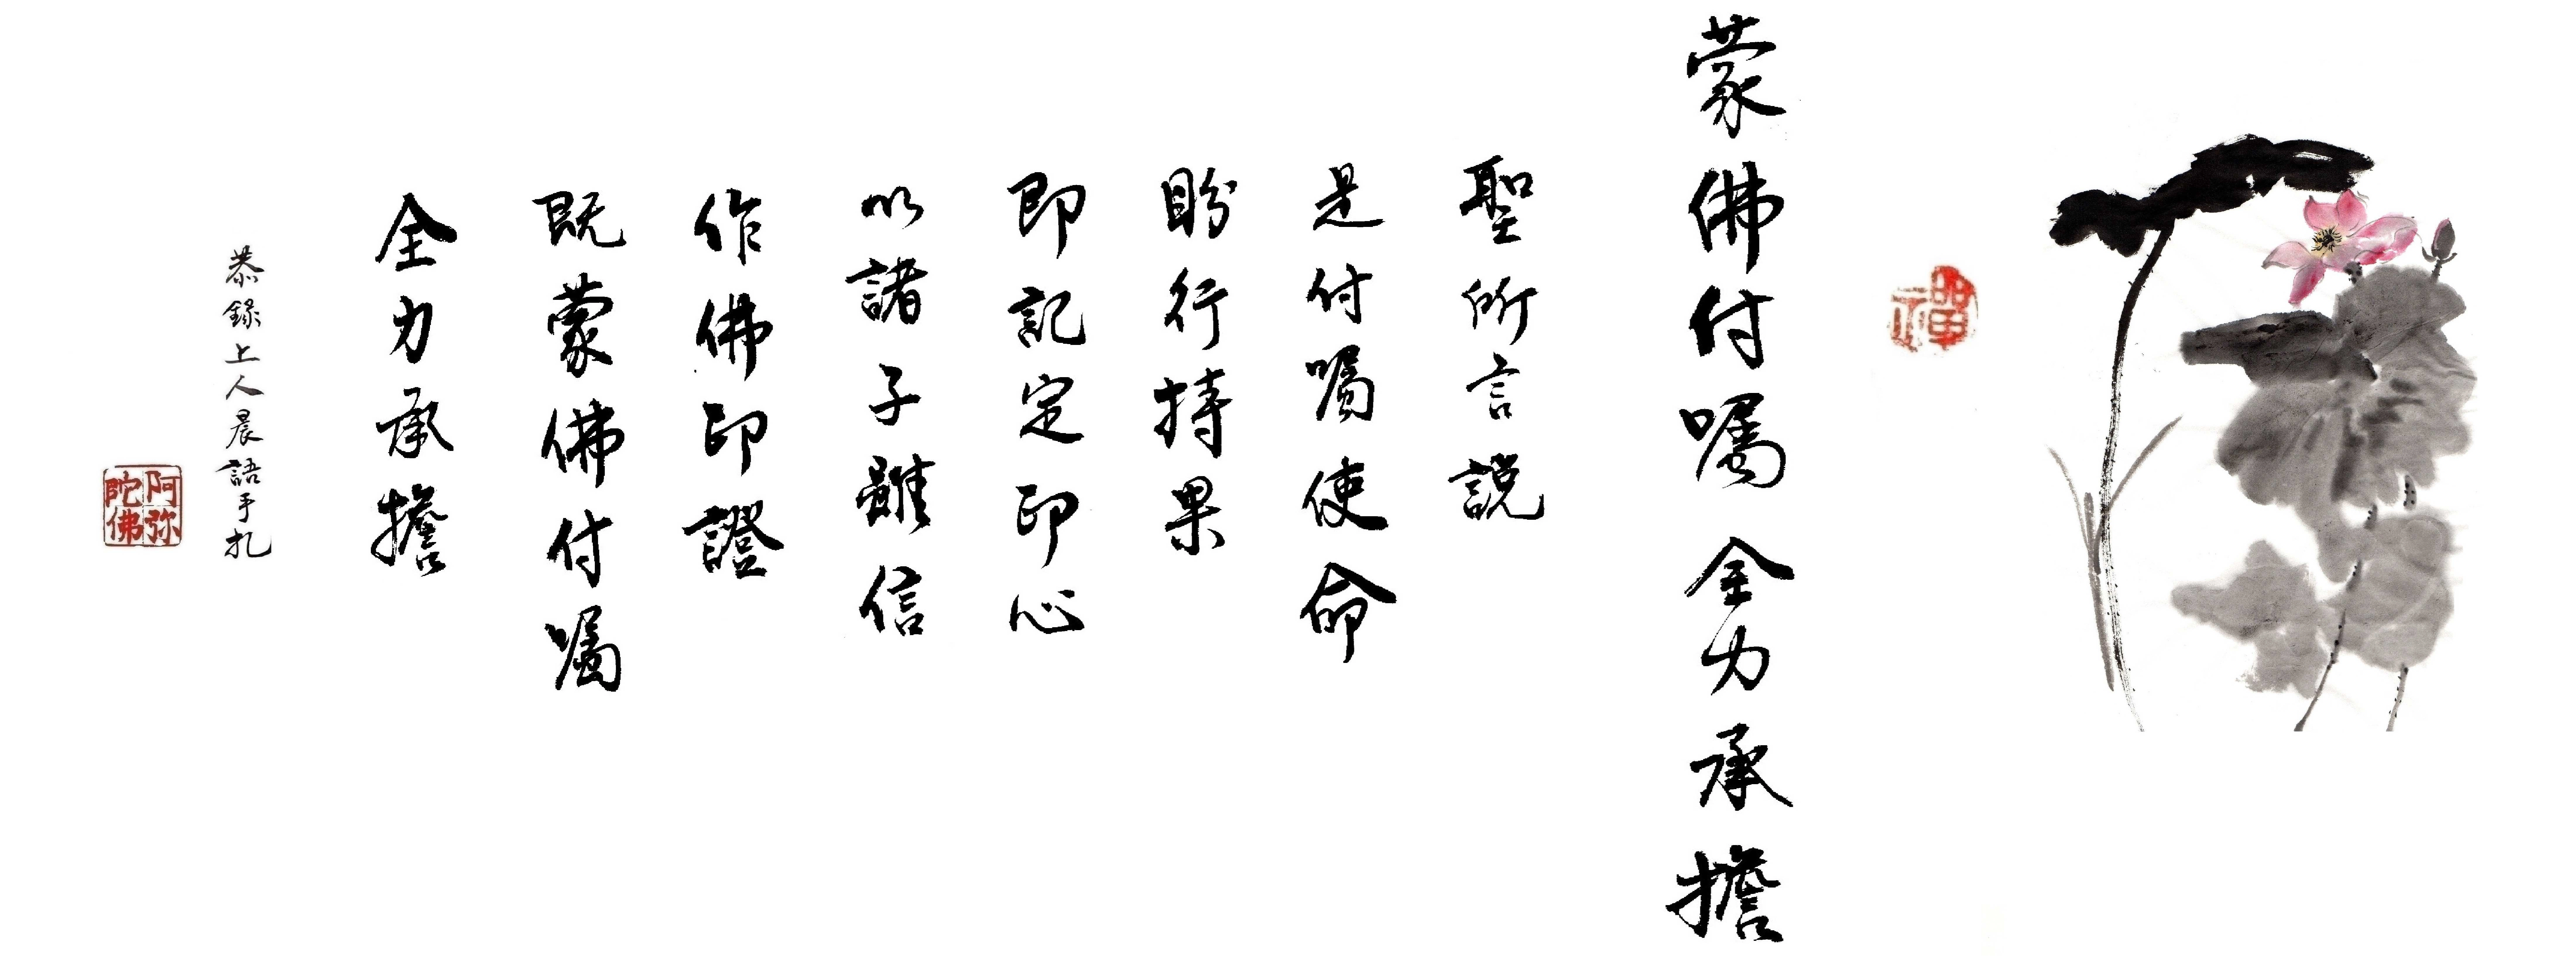 禪
蒙佛付囑全力承擔
聖所言説
是付囑使命
盼行持果
即記定印心
以諸子雖信
作佛印證
既蒙佛付囑
全力承擔
恭錄上人晨語手扎
阿弥陀佛